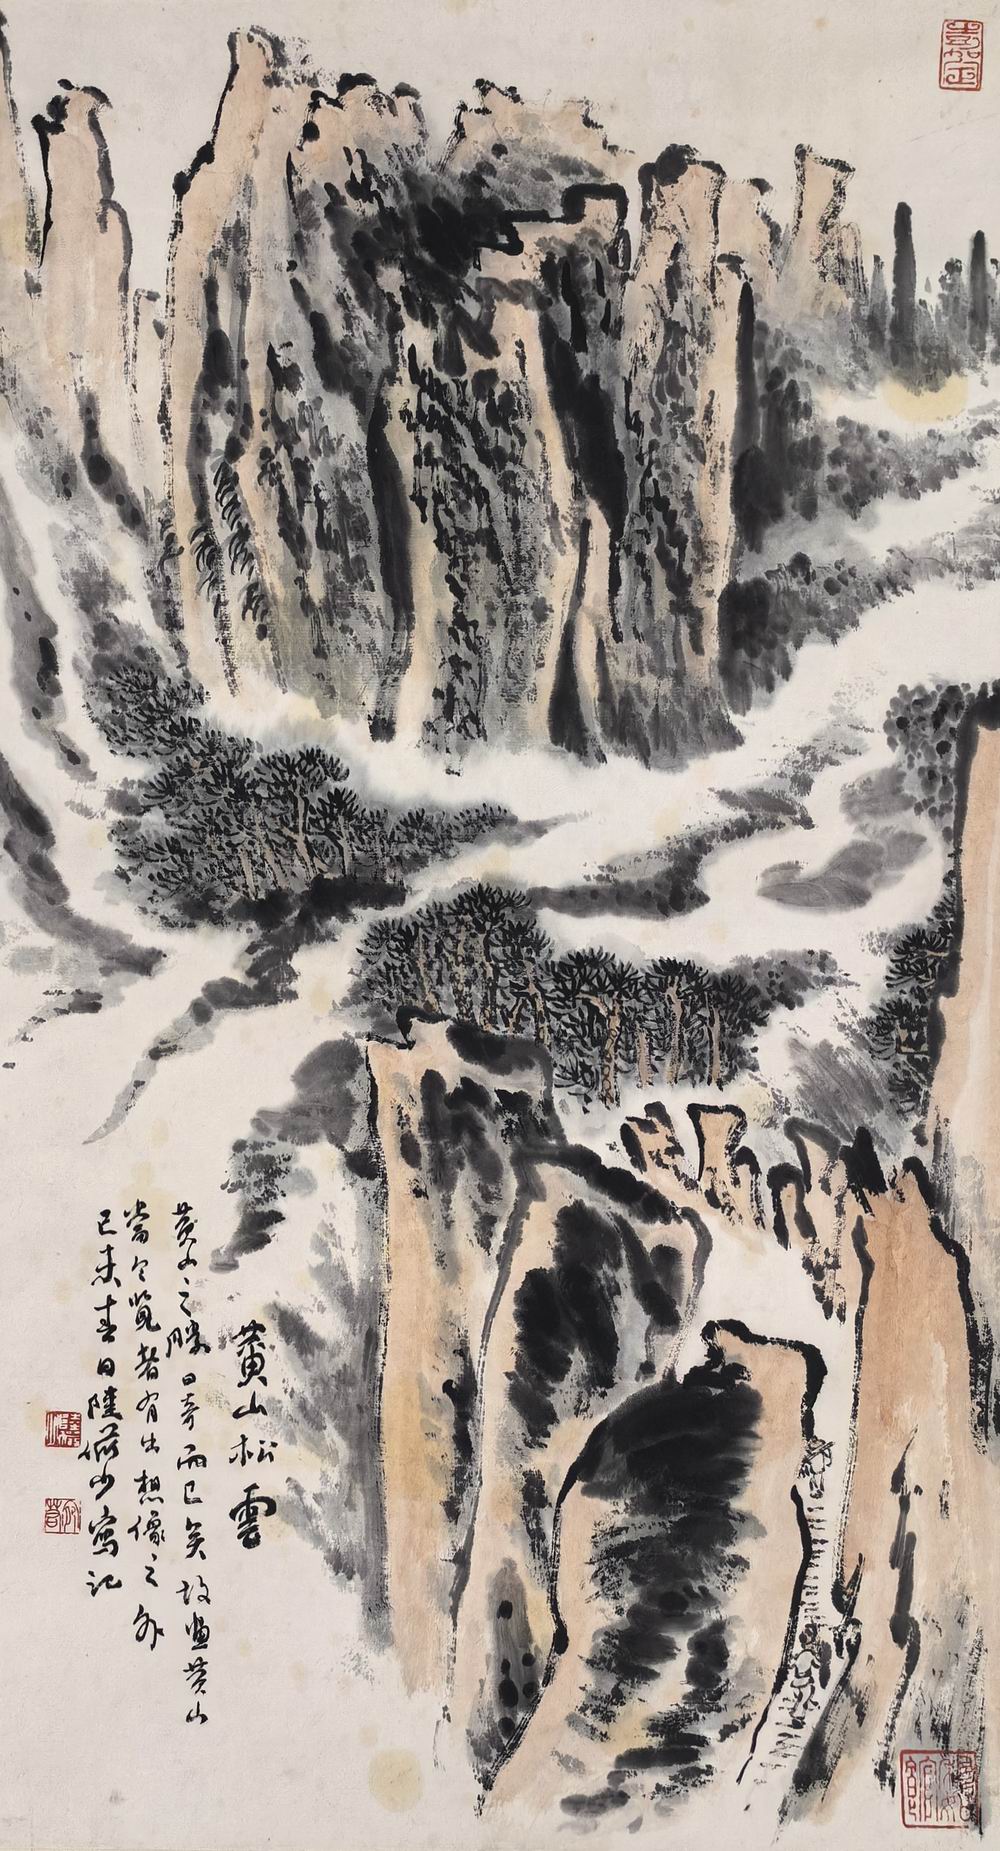 嘉定
黃山松雲
黄山之勝曰奇而已矣故畫黄山
當令覽者有出想像之外
己未春日陸儼少寫記